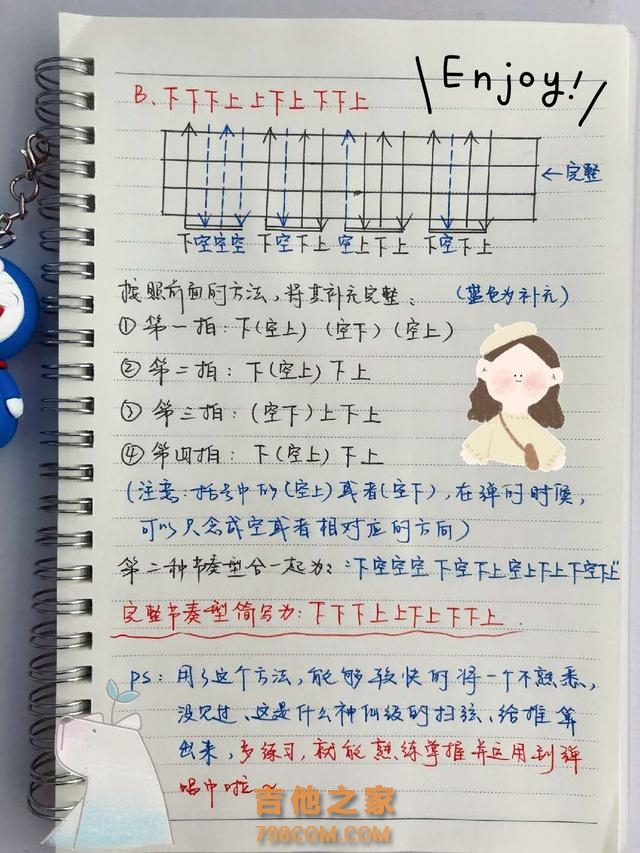 Enjoy!
B. 下下下上 上下上 下下上
←完整
下空空空 下空下上 空上下上 下空下上
按照前面的方法,将其补充完整: (蓝色为补充)
① 第一拍:下(空上) (空下) (空上)
② 第二拍:下(空上)下上
③ 第三拍:(空下)上下上
④ 第四拍:下(空上)下上
(注意:括号中的(空上)或者(空下),在弹的时候,
可以只念成空或者相对应的方向)
第二种节奏型合一起为:"下空空空 下空下上 空上下上 下空下上"
完整节奏型简写为:下下下上 上下上 下下上
PS:用了这个方法,能够较快的将一个不熟悉,
没见过、这是什么神仙级的扫弦、给推算
出来,多练习,就能熟练掌握并运用到弹
唱中啦~
吉他之家
798COM.COM